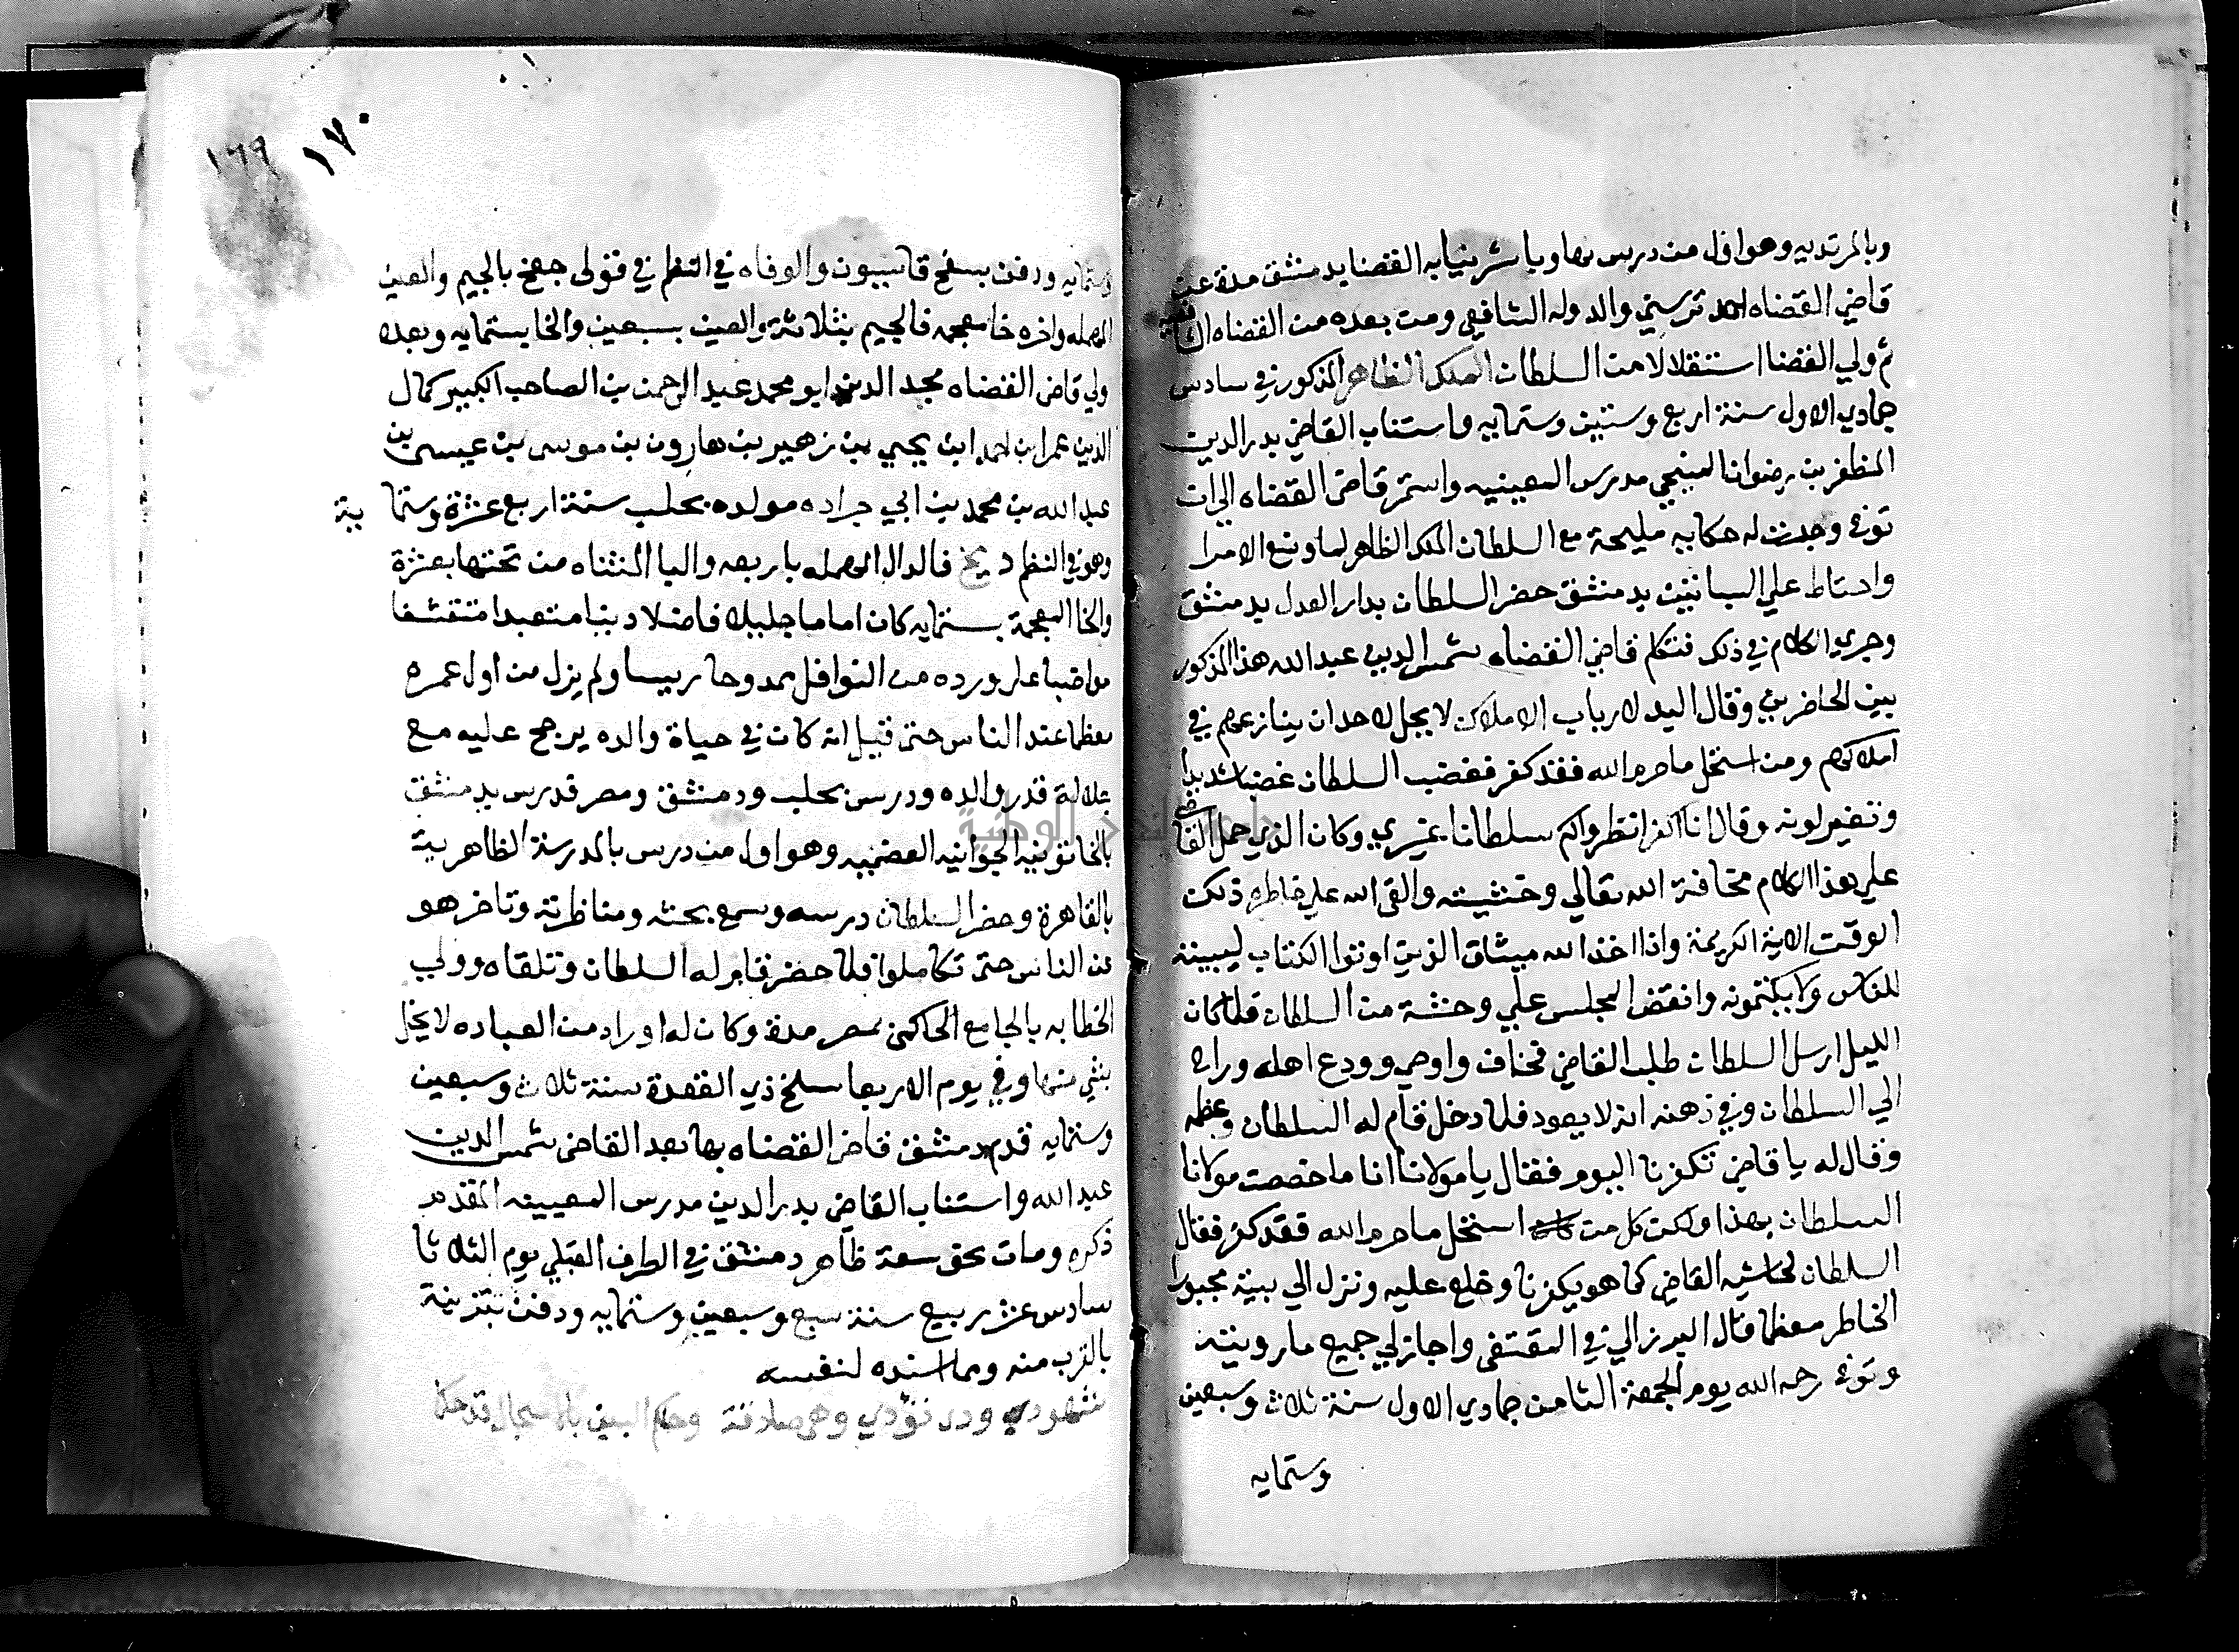 وبالمرتديه وهو اول من درس بها وباشر نيابه القضا بدمشق مدة عن
قاضي القضاه احمد والدوله الشافعي ومن بعده من القضاه
ثم ولي القضا استقلالا من السلطان الملك الظاهر المذكور في سادس
جمادي الاول سنة اربع وستين وستمايه واستناب القاضي بدر الدين
المظفر بن رضوان المنبجي مدرس المعينيه واستمر قاضي القضاه الي ان
توفي وجدت له حكايه مليحة مع السلطان الملك الظاهر لما
واحتاط علي البساتين بدمشق حضر السلطان بدار العدل بدمشق
وجري الكلام في ذلك فتكلم قاضي القضاه شمس الدين عبد الله هذا المذكور
بين الحاضرين وقال اليد لارباب الاملاك لا يحل لاحد ان ينازعهم في
املاكهم ومن استحل ما حرم الله فقد كفر فغضب السلطان غضبا شديدا
وتغير لونه وقال انا اكفر انظروا لكم سلطانا غيري وكان الذي حمل القاضي
علي هذا الكلام مخافة الله تعالي وخشيته والقي الله علي خاطره ذلك
الوقت الاية الكريمة واذا اخذ الله ميثاق الذين اوتوا الكتاب ليبيننه
للناس ولا يكتمونه وانفض المجلس علي وحشة من السلطان فلما كان
الليل ارسل السلطان طلب القاضي فخاف واوصي وودع اهله وراح
الي السلطان وفي ذهنه انه لا يعود فلما دخل قام له السلطان وعظمه
وقال له يا قاضي تكفرنا اليوم فقال يا مولانا انا ما خصصت مولانا
السلطان بهذا ولكن كل من استحل ما حرم الله فقد كفر فقال
السلطان لحاشيه القاضي كما هو يكفرنا وخلع عليه ونزل الي بيته مجبورا
الخاطر معظما قال البرزالي في المقتفي واجاز لي جميع ما رويته
وتوفي رحمه الله يوم الجمعة الثامن جمادي الاول سنة ثلاث وسبعين
وستمايه
١٧٠
١٦٩
وستمايه ودفن بسفح قاسيون والوفاه في النظم في قولي جعخ بالجيم والعين
المهمله واخره خا معجمه فالجيم بثلاثة والعين بسبعين والخا بستمايه وبعده
ولي قاضي القضاه مجد الدين ابو محمد عبد الرحمن بن الصاحب الكبير كمال
الدين عمر ابن احمد ابن يحيي بن زهير بن هارون بن موسي بن عيسي بن
عبد الله بن محمد بن ابي جراده مولده بحلب سنة اربع عشرة وستماية
وهو في النظم ديخ فالدال المهمله باربعه واليا المثناه من تحتها بعشرة
والخا المعجمة بستمايه كان اماما جليلا فاضلا دينا متعبدا متقشفا
مواضبا علي ورده من النوافل ممدوحا رييسا ولم يزل من اول عمره
معظما عند الناس حتي قيل انه كان في حياة والده يرجح عليه مع
جلالة قدر والده ودرس بحلب ودمشق ومصر فدرس بدمشق
بالخاتونيه الجوانيه وهو اول من درس بالمدرسة الظاهرية
بالقاهرة وحضر السلطان درسه وسمع بحثه ومناظرته وتاخر هو
عن الناس حتي تكاملوا فلما حضر قام له السلطان وتلقاه وولي
الخطابه بالجامع الحاكمي بمصر مدة وكان له اوراد من العباده لا يخل
بشي منها وفي يوم الاربعا سلخ ذي القعدة سنة ثلاث وسبعين
وستمايه قدم دمشق قاضي القضاه بها بعد القاضي شمس الدين
عبد الله واستناب القاضي بدر الدين مدرس المعينيه المقدم
ذكره ومات ظاهر دمشق في الطرف القبلي يوم الثلاثا
سادس عشر ربيع سنة سبع وسبعين وستمايه ودفن بتربة
بالقرب منه ومما انشده لنفسه
شهودي ودي تؤدي وهي صادقة وحاكم البين بالاسجال قد حكما